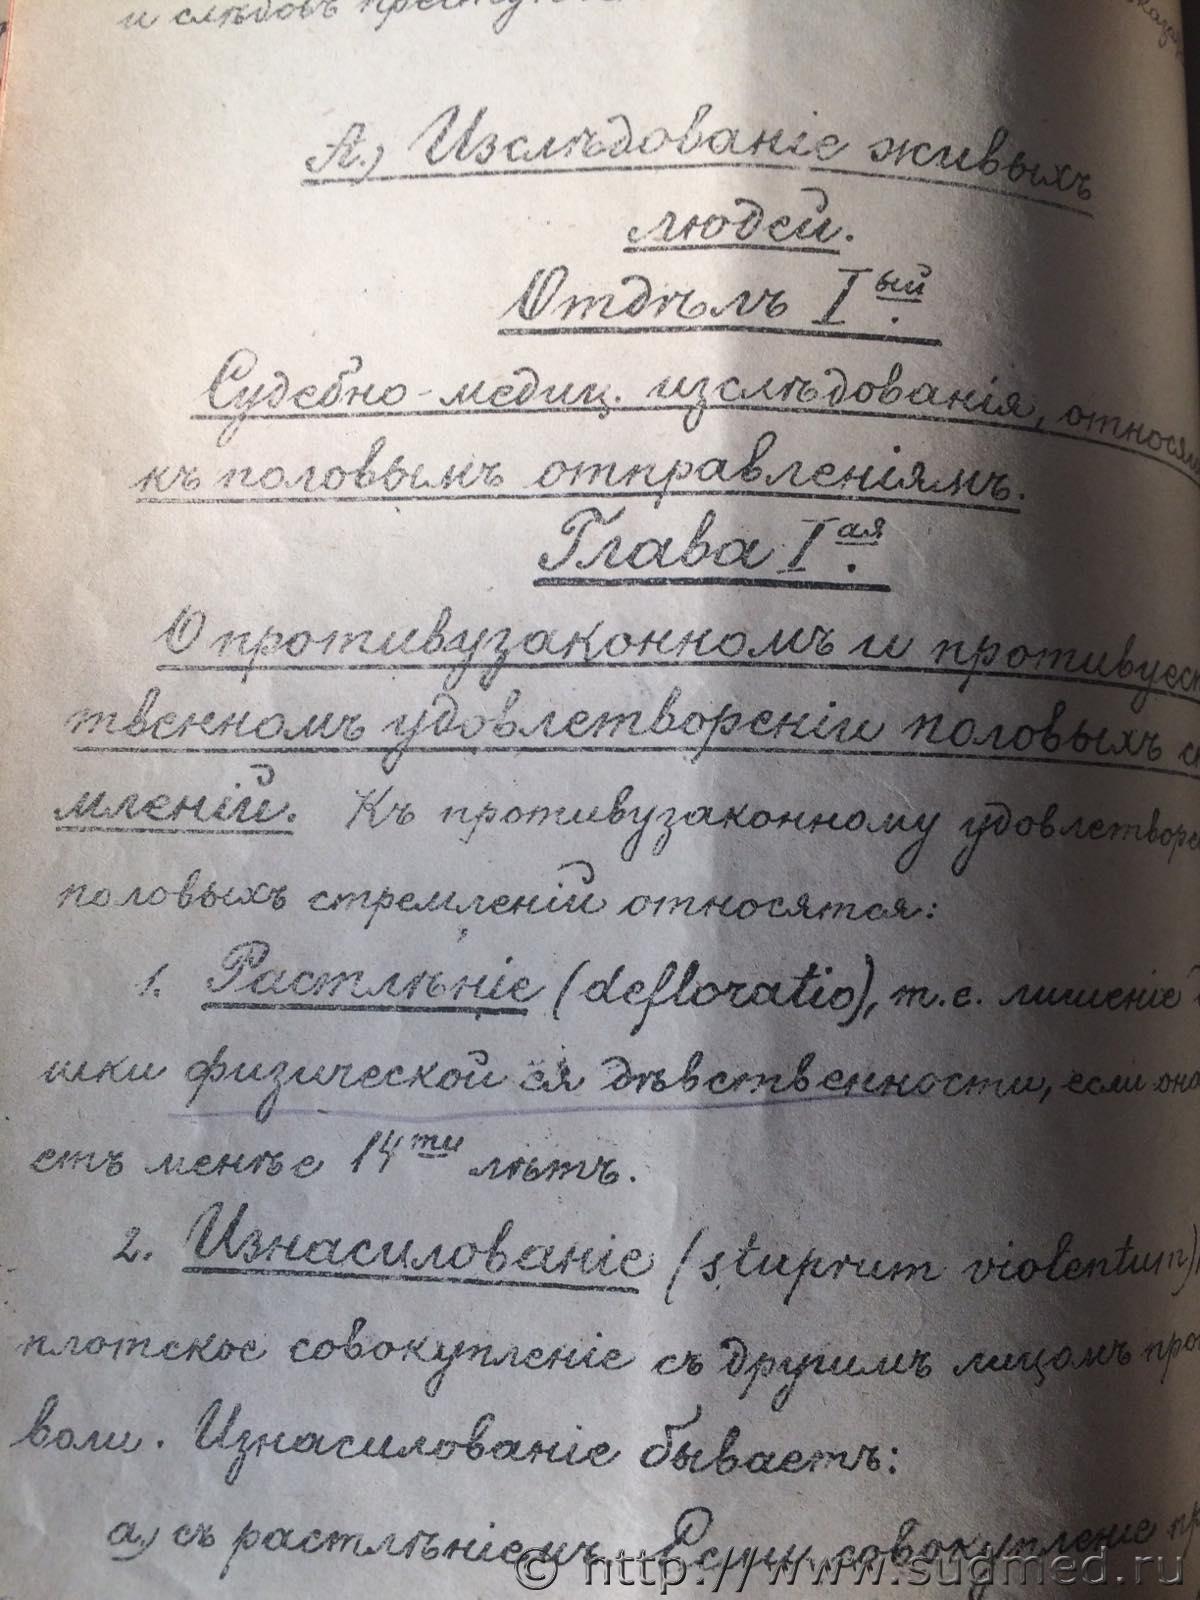 и слѣдовъ
А.) Изслѣдованіе живыхъ
людей.
Отдѣлъ I ый.
Судебно-медиц. изслѣдованія, относя
къ половымъ отправленіямъ.
Глава I ая.
О противузаконномъ и противуест
твенномъ удовлетвореніи половыхъ с
мленій. Къ противузаконному удовлетворе
половыхъ стремленій относятся:
1. Растлѣніе (defloratio), т.е. лишеніе
шки физической ея дѣвственности, если она
етъ менѣе 14ти лѣтъ.
2. Изнасилованіе (stuprum violentum)
плотское совокупленіе съ другимъ лицомъ про
воли. Изнасилованіе бываетъ:
а) съ растлѣніемъ. Если совокупленіе пр
© http://www.sudmed.ru